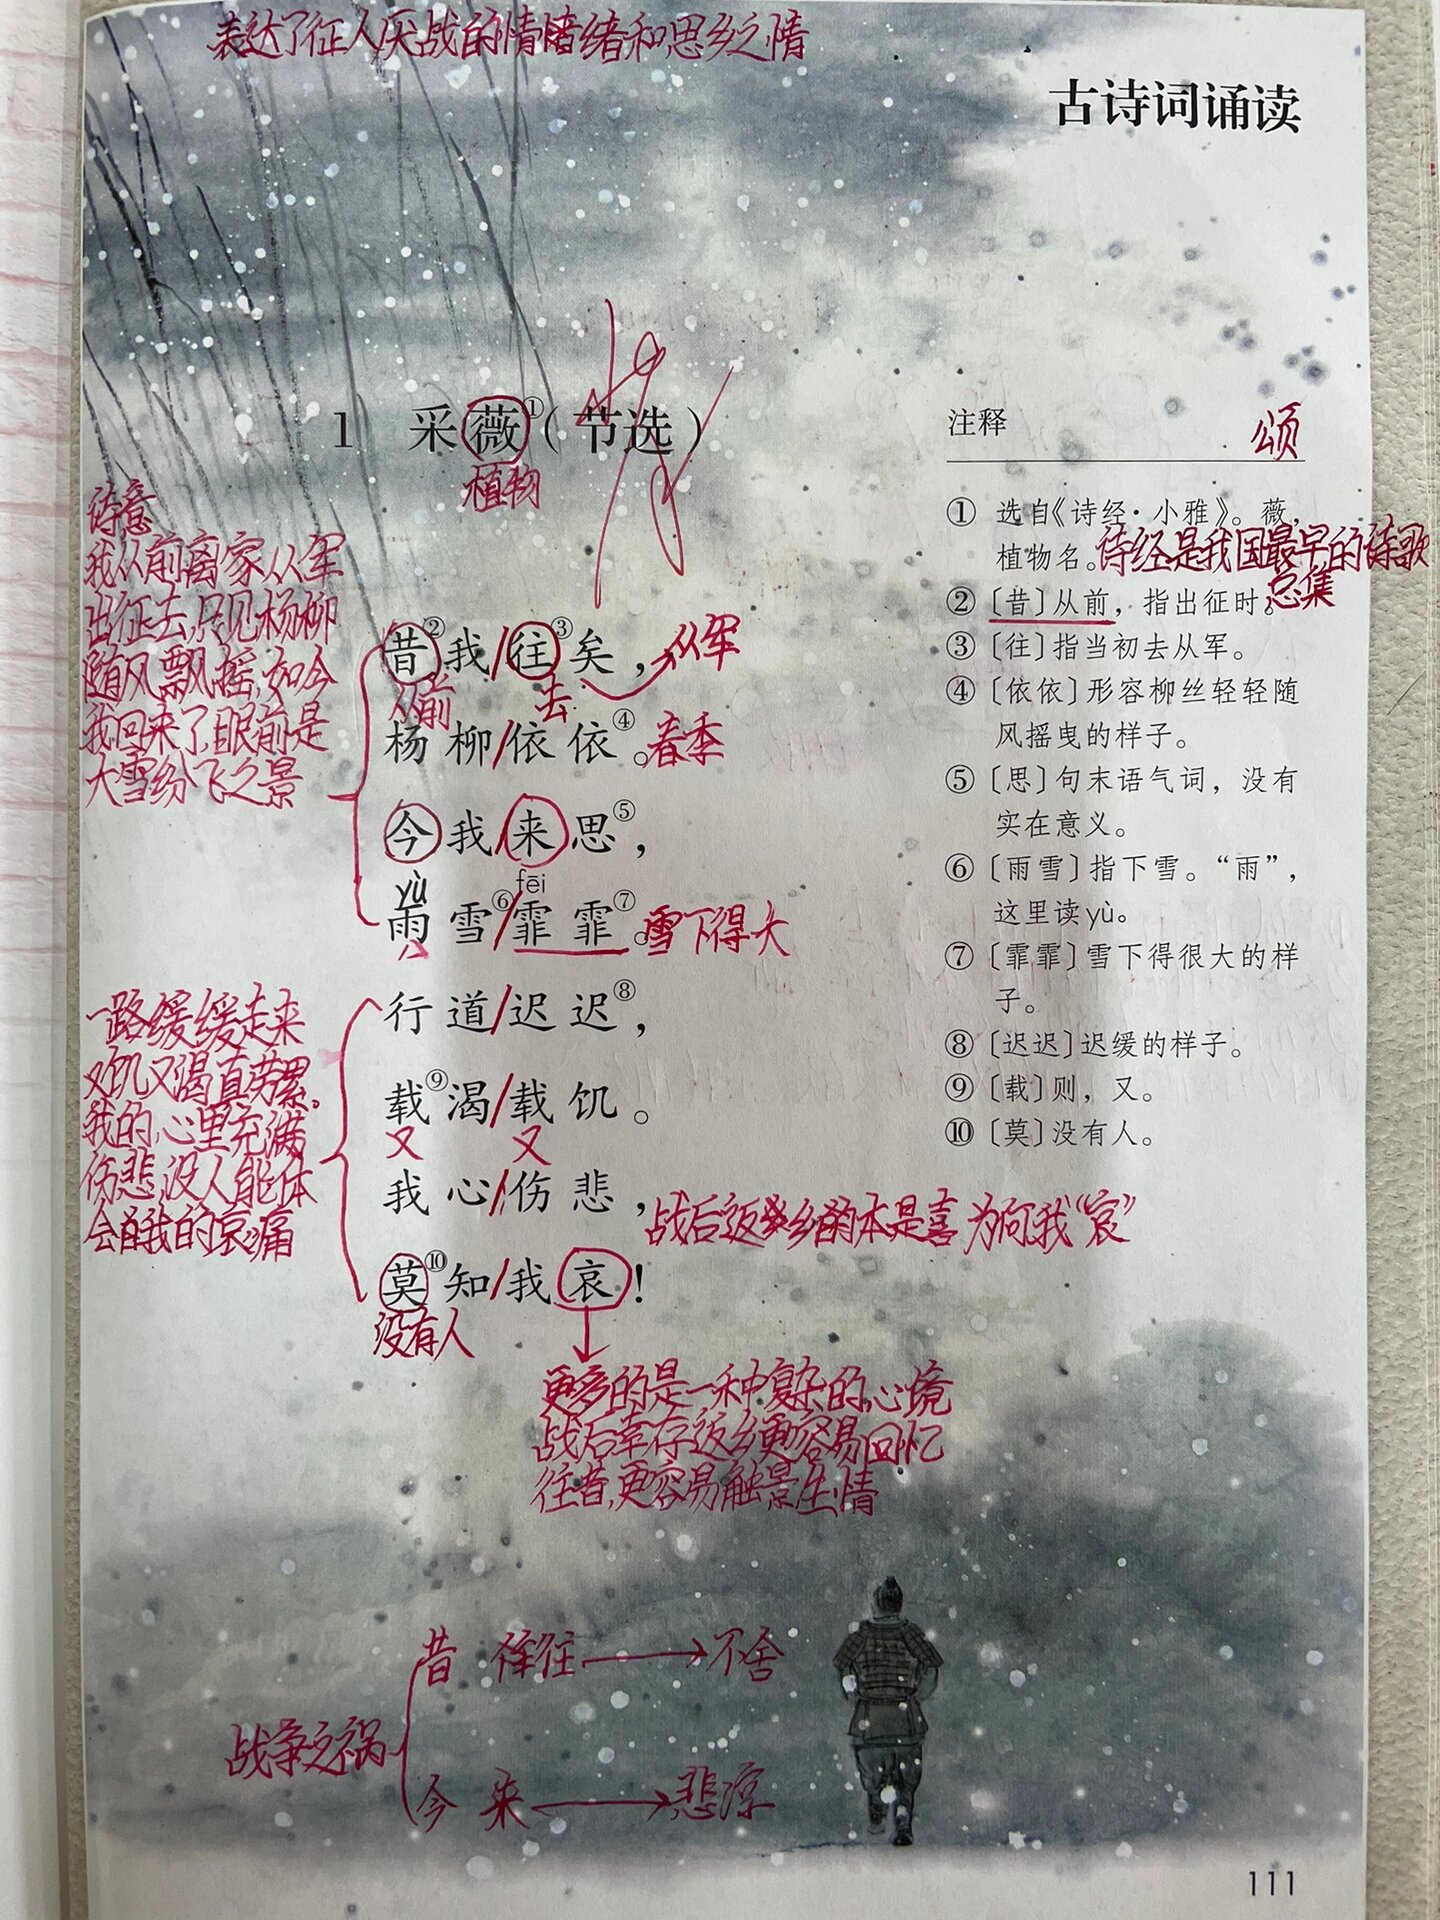 表达了征人厌战的情绪和思乡之情
古诗词诵读
1 采薇①(节选)
植物
诗意
我从前离家从军
出征去,只见杨柳
随风飘摇,如今
我回来了,眼前是
大雪纷飞之景
昔②我/往③矣,从军
从前 去
杨柳/依依④。春季
今我/来思⑤,
yù fēi
雨雪⑥/霏霏⑦。雪下得大
一路缓缓走来
又饥又渴真劳累。
我的心里充满
伤悲,没人能体
会我的哀痛
行道/迟迟⑧,
载⑨渴/载饥。
又 又
我心/伤悲,战后返乡本是喜 为何我“哀”
莫⑩知/我哀!
没有人
更多的是一种复杂的心境
战后幸存返乡更容易回忆
往昔,更容易触景生情
注释 颂
① 选自《诗经·小雅》。薇,
植物名。诗经是我国最早的诗歌
总集
② 〔昔〕从前,指出征时。
③ 〔往〕指当初去从军。
④ 〔依依〕形容柳丝轻轻随
风摇曳的样子。
⑤ 〔思〕句末语气词,没有
实在意义。
⑥ 〔雨雪〕指下雪。“雨”,
这里读yù。
⑦ 〔霏霏〕雪下得很大的样
子。
⑧ 〔迟迟〕迟缓的样子。
⑨ 〔载〕则,又。
⑩ 〔莫〕没有人。
昔 往 → 不舍
战争之祸
今 来 → 悲凉
111